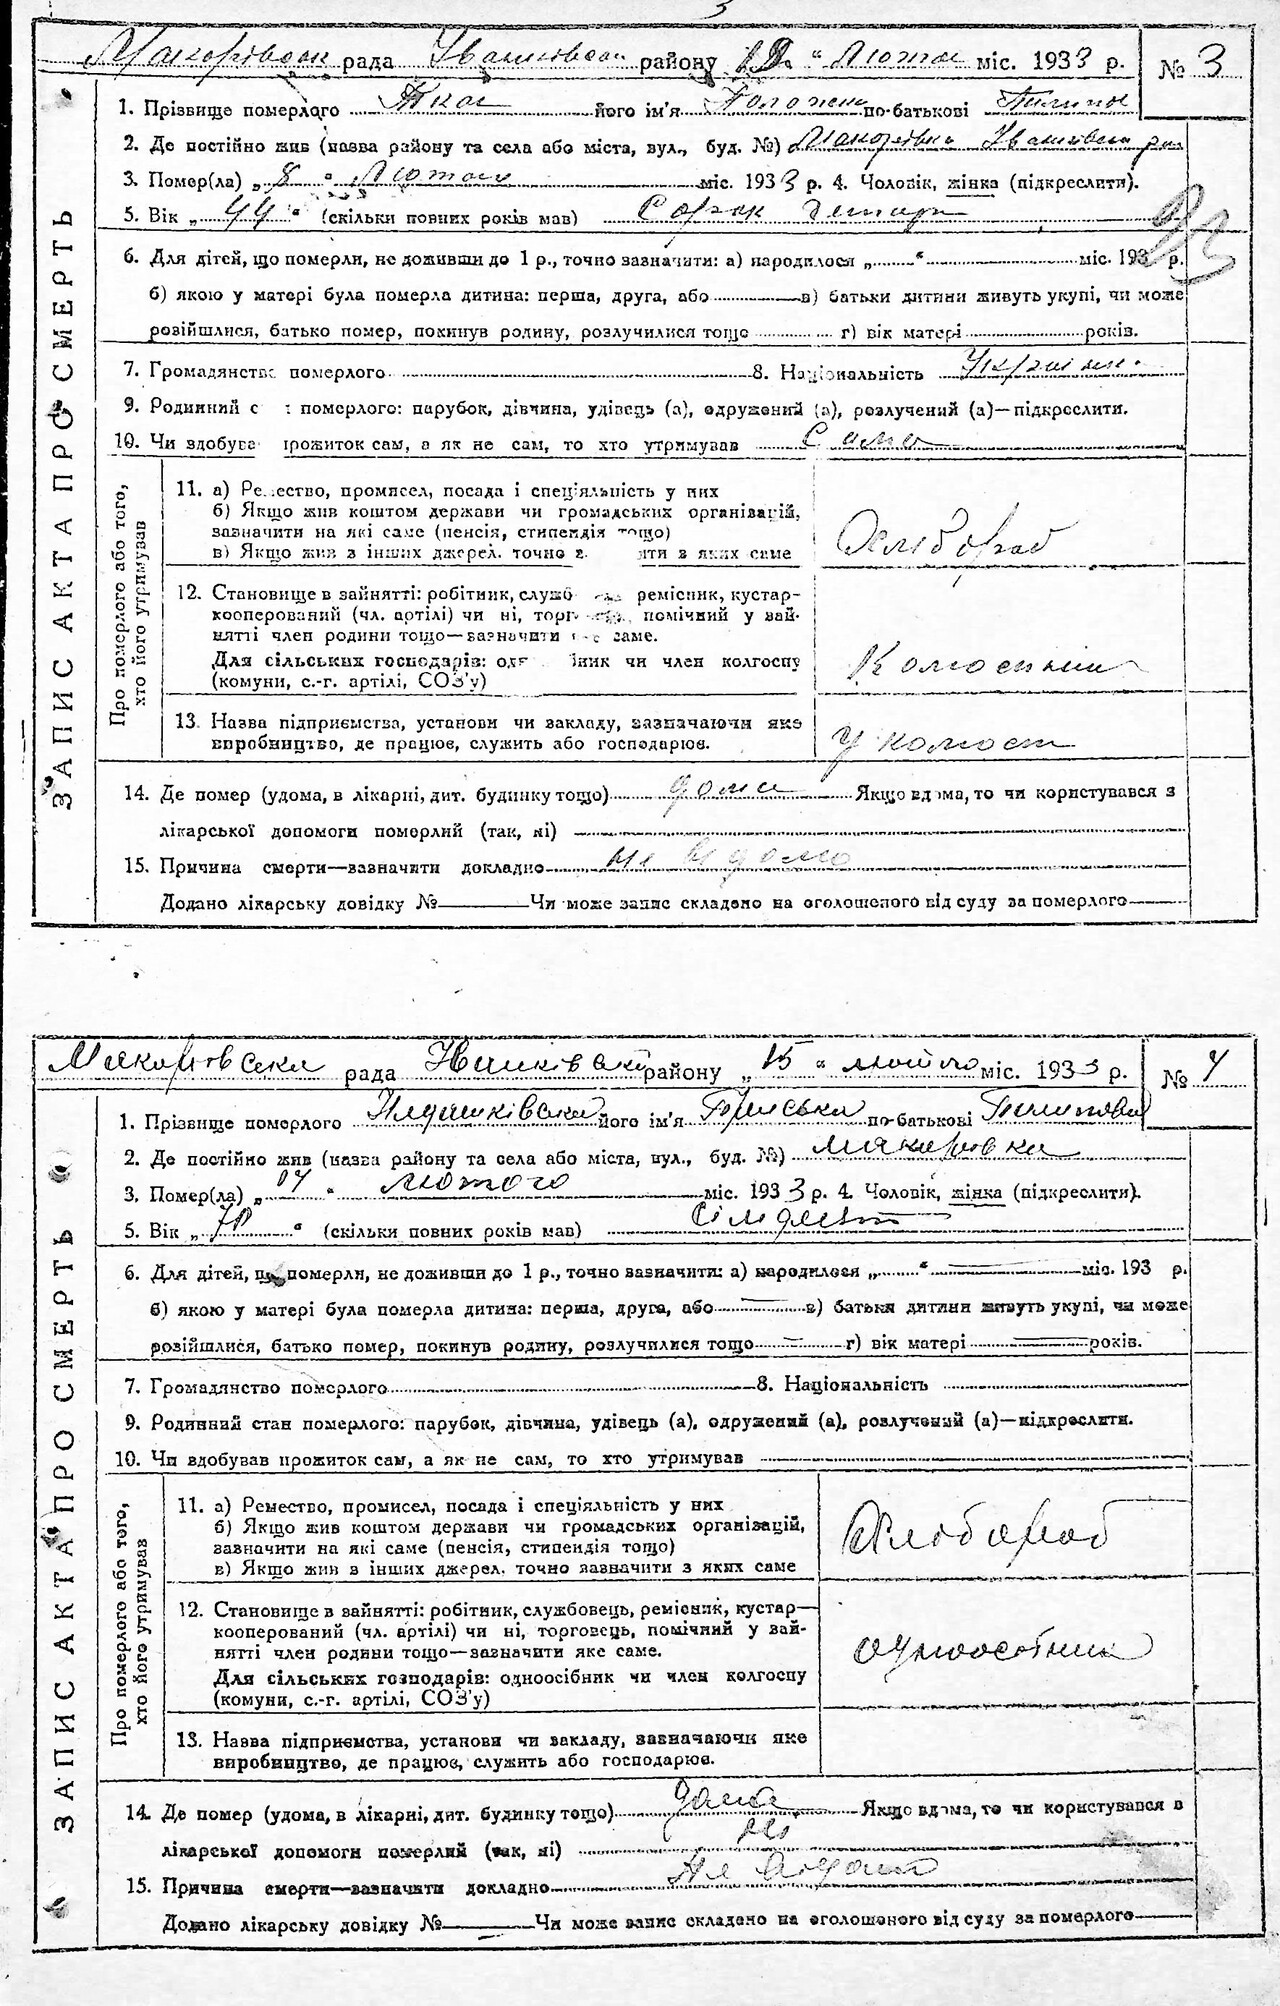 3
рада району міс. 1933 р. № 3
1. Прізвище померлого Ткач його ім'я по-батькові
2. Де постійно жив (назва району та села або міста, вул., буд. №)
3. Помер(ла) „ 8 " Лютого міс. 1933 р. 4. Чоловік, жінка (підкреслити).
5. Вік „ 44 " (скільки повних років мав) Сорок
6. Для дітей, що померли, не доживши до 1 р., точно зазначити: а) народилося „ " міс. 193 р.
б) якою у матері була померла дитина: перша, друга, або в) батьки дитини живуть укупі, чи може
розійшлися, батько помер, покинув родину, розлучилися тощо г) вік матері років.
7. Громадянство померлого 8. Національність
9. Родинний с померлого: парубок, дівчина, удівець (а), одружений (а), розлучений (а)—підкреслити.
10. Чи здобува прожиток сам, а як не сам, то хто утримував Сама
ЗАПИС АКТА ПРО СМЕРТЬ
Про померлого або того,
хто його утримував
11. а) Ре ество, промисел, посада і спеціяльність у них
б) Якщо жив коштом держави чи громадських організацій,
зазначити на які саме (пенсія, стипендія тощо)
в) Якщо жив з інших джерел, точно з ити з яких саме
Хлібороб
12. Становище в зайнятті: робітник, служб ремісник, кустар-
кооперований (чл. артілі) чи ні, торг помічний у зай-
нятті член родини тощо—зазначити саме.
Для сільських господарів: од ник чи член колгоспу
(комуни, с.-г. артілі, СОЗ'у)
13. Назва підприємства, установи чи закладу, зазначаючи яке
виробництво, де працює, служить або господарює.
у
14. Де помер (удома, в лікарні, дит. будинку тощо) дома Якщо вдома, то чи користувався з
лікарської допомоги померлий (так, ні)
15. Причина смерти—зазначити докладно не відомо
Додано лікарську довідку № Чи може запис складено на оголошеного від суду за померлого
Макаровска рада району „ 15 " лютого міс. 1933 р. № 4
1. Прізвище померлого його ім'я по-батькові
2. Де постійно жив (назва району та села або міста, вул., буд. №) Макаровка
3. Помер(ла) „ 14 " лютого міс. 1933 р. 4. Чоловік, жінка (підкреслити).
5. Вік „ 70 " (скільки повних років мав) сімдесят
6. Для дітей, що померли, не доживши до 1 р., точно зазначити: а) народилося „ " міс. 193 р.
б) якою у матері була померла дитина: перша, друга, або в) батьки дитини живуть укупі, чи може
розійшлися, батько помер, покинув родину, розлучилися тощо г) вік матері років.
7. Громадянство померлого 8. Національність
9. Родинний стан померлого: парубок, дівчина, удівець (а), одружений (а), розлучений (а)—підкреслити.
10. Чи здобував прожиток сам, а як не сам, то хто утримував
ЗАПИС АКТА ПРО СМЕРТЬ
Про померлого або того,
хто його утримував
11. а) Ремество, промисел, посада і спеціяльність у них
б) Якщо жив коштом держави чи громадських організацій,
зазначити на які саме (пенсія, стипендія тощо)
в) Якщо жив з інших джерел, точно зазначити з яких саме
Хлібороб
12. Становище в зайнятті: робітник, службовець, ремісник, кустар—
кооперований (чл. артілі) чи ні, торговець, помічний у зай-
нятті член родини тощо—зазначити яке саме.
Для сільських господарів: одноосібник чи член колгоспу
(комуни, с.-г. артілі, СОЗ'у)
одноосібник
13. Назва підприємства, установи чи закладу, зазначаючи яке
виробництво, де працює, служить або господарює.
14. Де помер (удома, в лікарні, дит. будинку тощо) дома Якщо вдома, то чи користувався з
лікарської допомоги померлий (так, ні) ні
15. Причина смерти—зазначити докладно не відомо
Додано лікарську довідку № Чи може запис складено на оголошеного від суду за померлого